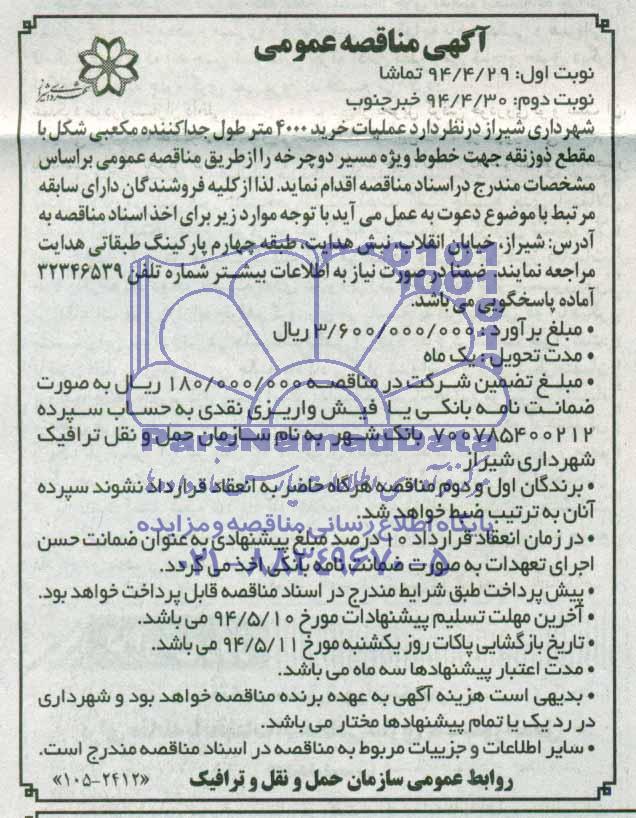 آگهی مناقصه عمومی
نوبت اول: ۹۴/۴/۲۹ تماشا
نوبت دوم: ۹۴/۴/۳۰ خبرجنوب
شهرداری شیراز در نظر دارد عملیات خرید ۴۰۰۰ متر طول جداکننده مکعبی شکل با
مقطع ذوزنقه جهت خطوط ویژه مسیر دوچرخه را از طریق مناقصه عمومی براساس
مشخصات مندرج در اسناد مناقصه اقدام نماید. لذا از کلیه فروشندگان دارای سابقه
مرتبط با موضوع دعوت به عمل می آید با توجه موارد زیر برای اخذ اسناد مناقصه به
آدرس: شیراز، خیابان انقلاب، نبش هدایت، طبقه چهارم پارکینگ طبقاتی هدایت
مراجعه نمایند. ضمنا در صورت نیاز به اطلاعات بیشتر شماره تلفن ۳۲۳۴۶۵۳۹
آماده پاسخگویی می باشد.
• مبلغ برآورد: ۳/۶۰۰/۰۰۰/۰۰۰ ریال
• مدت تحویل: یک ماه
• مبلغ تضمین شرکت در مناقصه ۱۸۰/۰۰۰/۰۰۰ ریال به صورت
ضمانت نامه بانکی یا فیش واریزی نقدی به حساب سپرده
۷۰۰۷۸۵۴۰۰۲۱۲ بانک شهر به نام سازمان حمل و نقل ترافیک
شهرداری شیراز
• برندگان اول و دوم مناقصه هرگاه حاضر به انعقاد قرارداد نشوند سپرده
آنان به ترتیب ضبط خواهد شد.
• در زمان انعقاد قرارداد ۱۰ درصد مبلغ پیشنهادی به عنوان ضمانت حسن
اجرای تعهدات به صورت ضمانت نامه بانکی اخذ می گردد.
• پیش پرداخت طبق شرایط مندرج در اسناد مناقصه قابل پرداخت خواهد بود.
• آخرین مهلت تسلیم پیشنهادات مورخ ۹۴/۵/۱۰ می باشد.
• تاریخ بازگشایی پاکات روز یکشنبه مورخ ۹۴/۵/۱۱ می باشد.
• مدت اعتبار پیشنهادها سه ماه می باشد.
• بدیهی است هزینه آگهی به عهده برنده مناقصه خواهد بود و شهرداری
در رد یک یا تمام پیشنهادها مختار می باشد.
• سایر اطلاعات و جزییات مربوط به مناقصه در اسناد مناقصه مندرج است.
روابط عمومی سازمان حمل و نقل و ترافیک
«۱۰۵-۲۴۱۲»
ParsNamadData
پایگاه اطلاع رسانی مناقصه و مزایده
۰۲۱-۸۸۳۴۹۶۷۰-۵